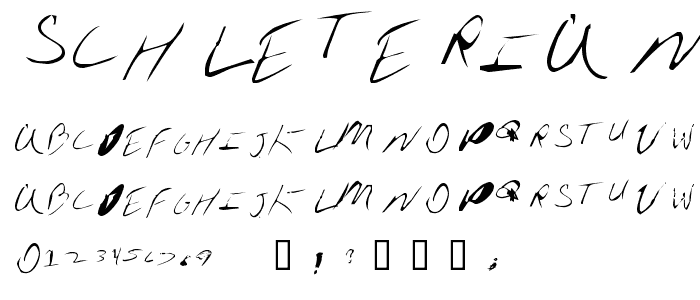 SCHLETERIAN
ABCDEFGHIJKLMNOPQRSTUVW
ABCDEFGHIJKLMNOPQRSTUVW
0123456789 ! ? ;